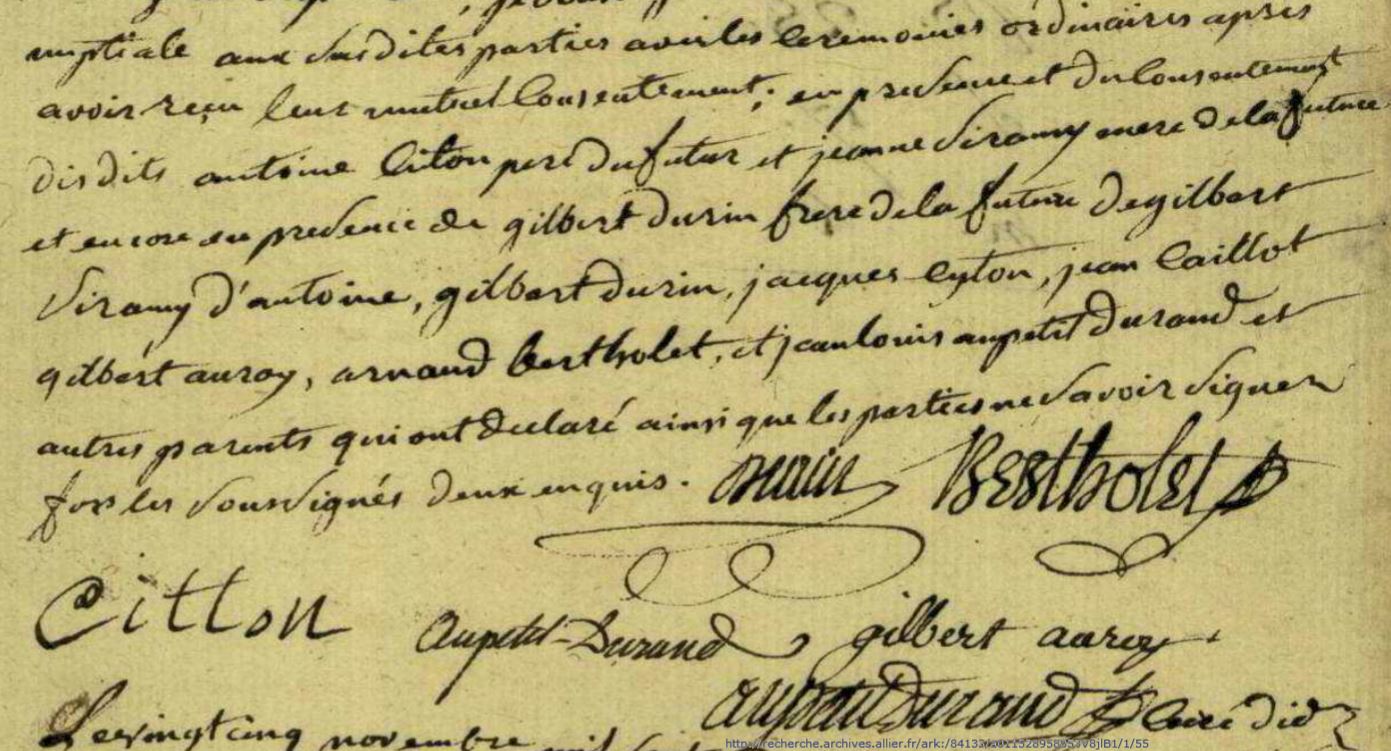 nuptiale aux susdites parties avec les ceremonies ordinaires apres
avoir reçu leur mutuel consentement; en presence et du consentement
desdits antoine Citon pere du futur et jeanne Siramy mere de la future
et encore en presence de gilbert durin frere de la future de gilbert
Siramy d'antoine, gilbert durin, jacques Cyton, jean Caillot
gilbert auroy, arnaud bertholet, et jean louis aupetit durand et
autres parents qui ont declaré ainsi que les parties ne savoir signer
fors les soussignés deux enquis. Bertholet
Citton
Aupetit-Durand gilbert auroy
aupetit Durand Curé did
Le vingt cinq novembre mil sept
http://recherche.archives.allier.fr/ark:/84133/